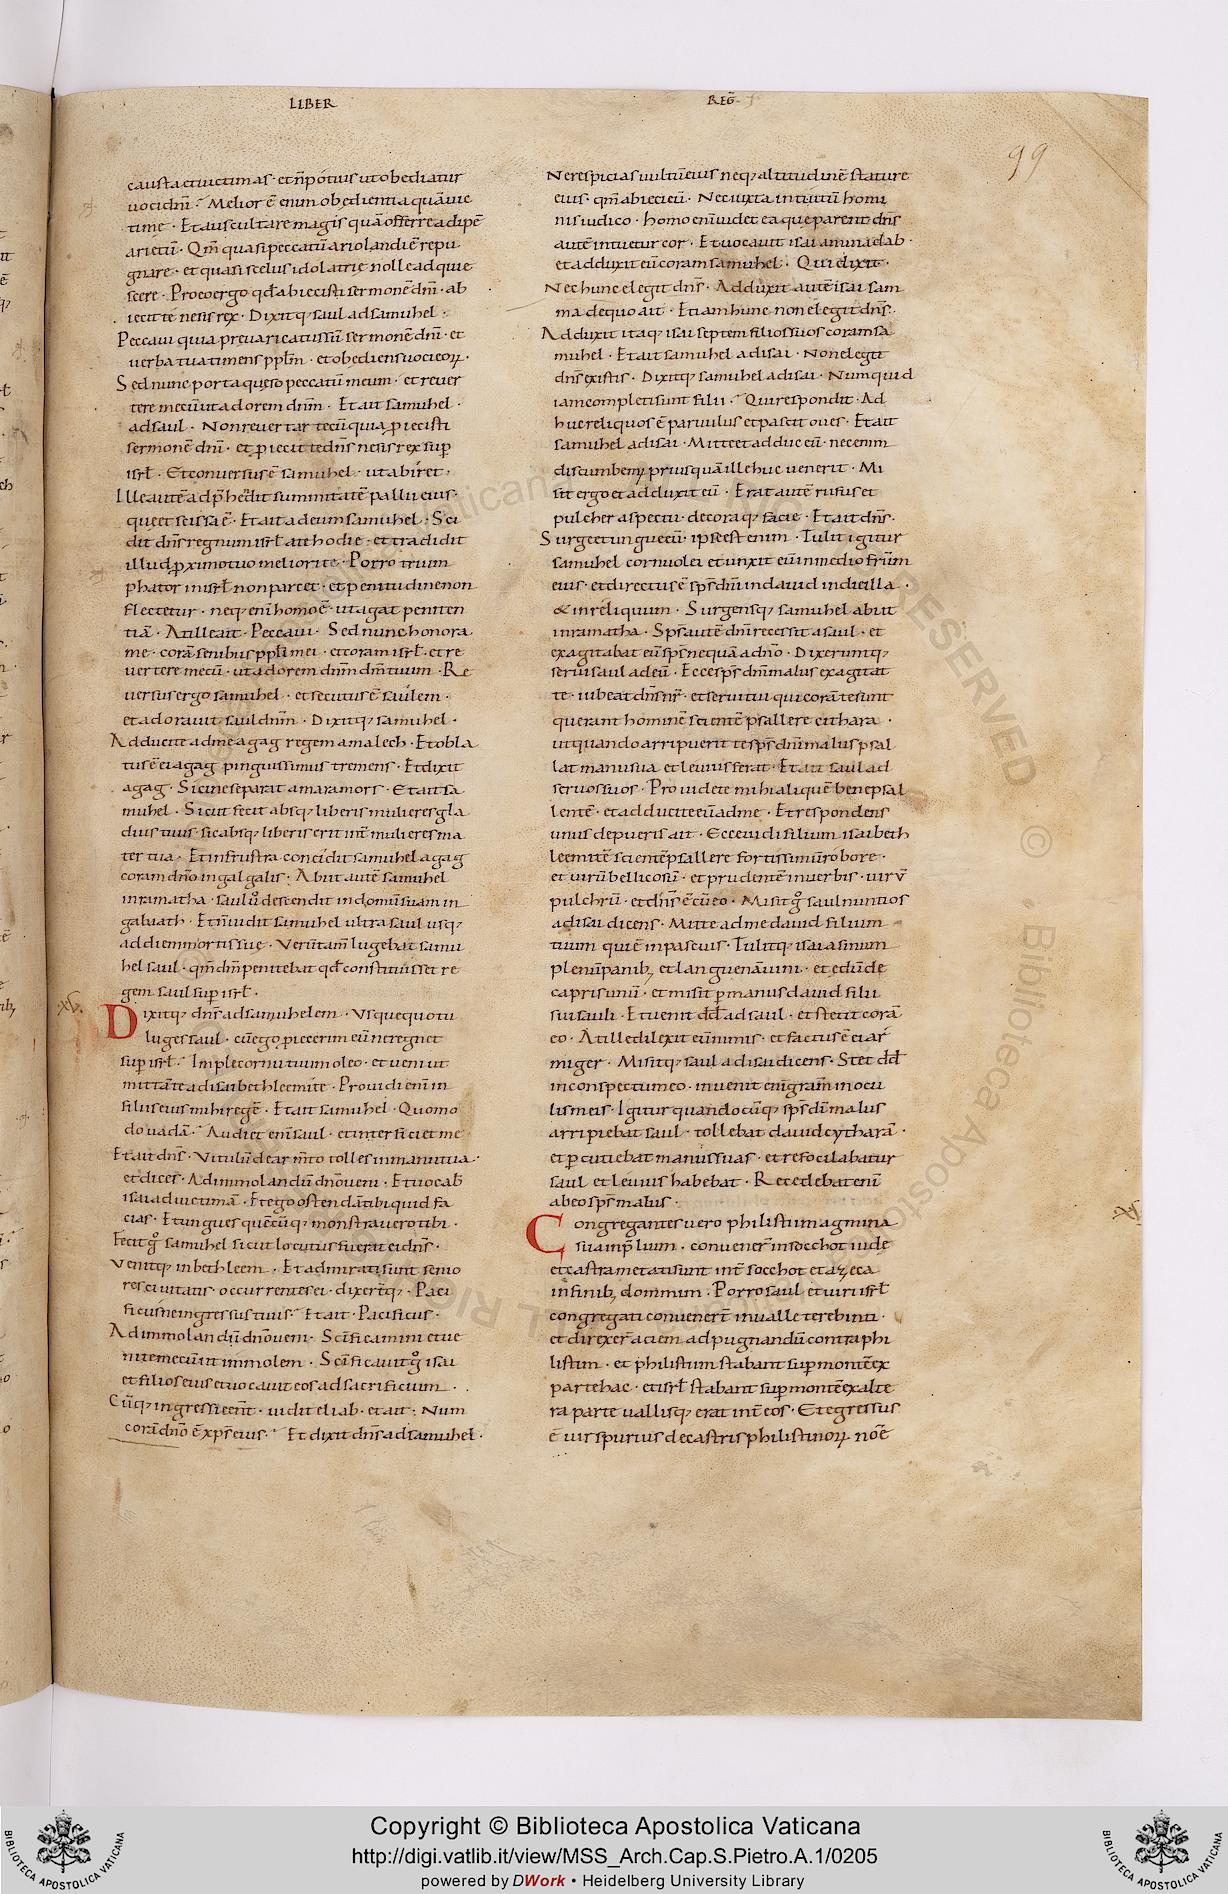 LIBER
REG̃ · I ·
99
causta et uictimas · et ñ potius ut obediatur
uoci dñi · Melior ẽ enim obedientia quã uic
time · Et auscultare magis quã offerre adipẽ
arietũ · Qm̃ quasi peccatũ ariolandi ẽ repu
gnare · et quasi scelus idolatrie nolle adquie
scere · Pro eo ergo qđ abiecisti sermonẽ dñi · ab
iecit te ne sis rex · Dixitq; saul ad samuhel ·
Peccaui quia preuaricatus sũ sermonẽ dñi · et
uerba tua timens pplm̃ · et obediens uoci eoꝝ ·
Sed nunc porta queso peccatũ meum · et reuer
tere mecũ ut adorem dñm · Et ait samuhel ·
ad saul · Non reuertar tecũ quia ꝓiecisti
sermonẽ dñi · et ꝓiecit te dñs ne sis rex sup̃
isrł · Et conuersus ẽ samuhel · ut abiret ·
Ille autẽ adp̃hendit summitatẽ pallii eius ·
que et scissa ẽ · Et ait ad eum samuhel · Sci
dit dñs regnum isrł a te hodie · et tradidit
illud ꝓximo tuo meliori te · Porro trium
phator in isrł non parcet · et penitudine non
flectetur · neq; enĩ homo ẽ · ut agat peniten
tiã · At ille ait · Peccaui · Sed nunc honora
me · corã senibus ppłi mei · et coram isrł · et re
uertere mecũ · ut adorem dñm dm̃ tuum · Re
uersus ergo samuhel · et secutus ẽ saulem ·
et adorauit saul dñm · Dixitq; samuhel ·
Adducite ad me agag regem amalech · Et obla
tus ẽ ei agag pinguissimus tremens · Et dixit
agag · Siccine separat amara mors · Et ait sa
muhel · Sicut fecit absq; liberis mulieres gla
dius tuus · sic absq; liberis erit int̃ mulieres ma
ter tua · Et in frustra concidit samuhel agag
coram dño in galgalis · Abiit autẽ samuhel
in ramatha · saul ů descendit in domũ suam in
gabaath · Et ñ uidit samuhel ultra saul usq;
ad diem mortis sue · Verũtam̃ lugebat samu
hel saul · qm̃ dñm penitebat qđ constituisset re
gem saul sup̃ isrł ·
·xv·
Dixitq; dñs ad samuhelem · Vsquequo tu
luges saul · cũ ego ꝓiecerim eũ ne regnet
sup̃ isrł · Imple cornu tuum oleo · et ueni ut
mittã te ad isai bethleemitẽ · Prouidi enĩ in
filiis eius mihi regẽ · Et ait samuhel · Quomo
do uadã · Audiet enĩ saul · et interficiet me ·
Et ait dñs · Vitulũ de arm̃to tolles in manu tua ·
et dices · Ad immolandũ dño ueni · Et uocab̃
isai ad uictimã · Et ego ostendã tibi quid fa
cias · Et ungues quẽcũq; monstrauero tibi ·
Fecit g̊ samuhel sicut locutus fuerat ei dñs ·
Venitq; in bethleem · Et admirati sunt senio
res ciuitatis · occurrentes ei · dixerũtq; · Paci
ficusne ingressus tuus · Et ait · Pacificus ·
Ad immolandũ dño ueni · Scĩficamini et ue
nite mecũ ut immolem · Scĩficauit g̊ isai
et filios eius et uocauit eos ad sacrificium ·
Cũq; ingressi eent · uidit eliab · et ait · Num
corã dño ẽ xp̃s eius · Et dixit dñs ad samuhel ·
Ne respicias uultũ eius neq; altitudinẽ stature
eius · qm̃ abieci eũ · Nec iuxta intuitũ homi
nis iudico · homo enĩ uidet ea que parent · dñs
autẽ intuetur cor · Et uocauit isai aminadab ·
et adduxit eũ coram samuhel · Qui dixit ·
Nec hunc elegit dñs · Adduxit autẽ isai sam
ma de quo ait · Etiam hunc non elegit dñs ·
Adduxit itaq; isai septem filios suos coram sa
muhel · Et ait samuhel ad isai · Non elegit
dñs ex istis · Dixitq; samuhel ad isai · Numquid
iam completi sunt filii · Qui respondit · Ad
huc reliquos ẽ paruulus et pascit oues · Et ait
samuhel ad isai · Mitte et adduc eũ · nec enim
discumbem; priusquã ille huc uenerit · Mi
sit ergo et adduxit eũ · Erat autẽ rufus et
pulcher aspectu · decoraq; facie · Et ait dñs ·
Surge et ungue eũ · ipse est enim · Tulit igitur
samuhel cornu olei et unxit eũ in medio frũm
eius · et directus ẽ sps̃ dñi in dauid in die illa ·
& in reliquum · Surgensq; samuhel abiit
in ramatha · Sps̃ autẽ dñi recessit a saul · et
exagitabat eũ sps̃ nequã a dño · Dixeruntq;
serui saul ad eũ · Ecce sps̃ dñi malus exagitat
te · iubeat dñs nr̃ · et serui tui qui corã te sunt
querant hominẽ scientẽ psallere cithara ·
ut quando arripuerit te sps̃ dñi malus psal
lat manu sua et leuius ferat · Et ait saul ad
seruos suos · Prouidete mihi aliquẽ bene psal
lentẽ · et adducite eũ ad me · Et respondens
unus de pueris ait · Ecce uidi filium isai beth
leemitẽ scientẽ psallere fortissimũ robore ·
et uirũ bellicosũ · et prudentẽ in uerbis · uirũ
pulchrũ · et dñs ẽ cũ eo · Misit g̊ saul nuntios
ad isai dicens · Mitte ad me dauid filium
tuum qui ẽ in pascuis · Tulitq; isai asinum
plenũ panib; et langenã uini · et edũ de
capris unũ · et misit p̱ manus dauid filii
sui sauli · Et uenit dđ ad saul · et stetit corã
eo · At ille dilexit eũ nimis · et factus ẽ ei ar
miger · Misitq; saul ad isai dicens · Stet dđ
in conspectu meo · inuenit enĩ gram̃ in ocu
lis meis · Igitur quandocũq; sps̃ dñi malus
arripiebat saul · tollebat dauid cytharã ·
et p̱cutiebat manu sua · et refocilabatur
saul et leuius habebat · Recedebat enĩ
ab eo sps̃ malus ·
xvi
Congregantes uero philistiim agmina
sua in p̃lium · conuener̃ in socchot iude
et castrametati sunt int̃ socchot et azeca
in finib; dommim · Porro saul et uiri isrł
congregati conuener̃t in ualle terebinti ·
et direxer̃ aciem ad pugnandũ contra phi
listim · et philistiim stabant sup̃ montẽ ex
parte hac · et isrł stabant sup̃ montẽ ex alte
ra parte uallisq; erat int̃ eos · Et egressus
ẽ uir spurius de castris philistinoꝝ noĩe
Copyright © Biblioteca Apostolica Vaticana
http://digi.vatlib.it/view/MSS_Arch.Cap.S.Pietro.A.1/0205
powered by DWork • Heidelberg University Library